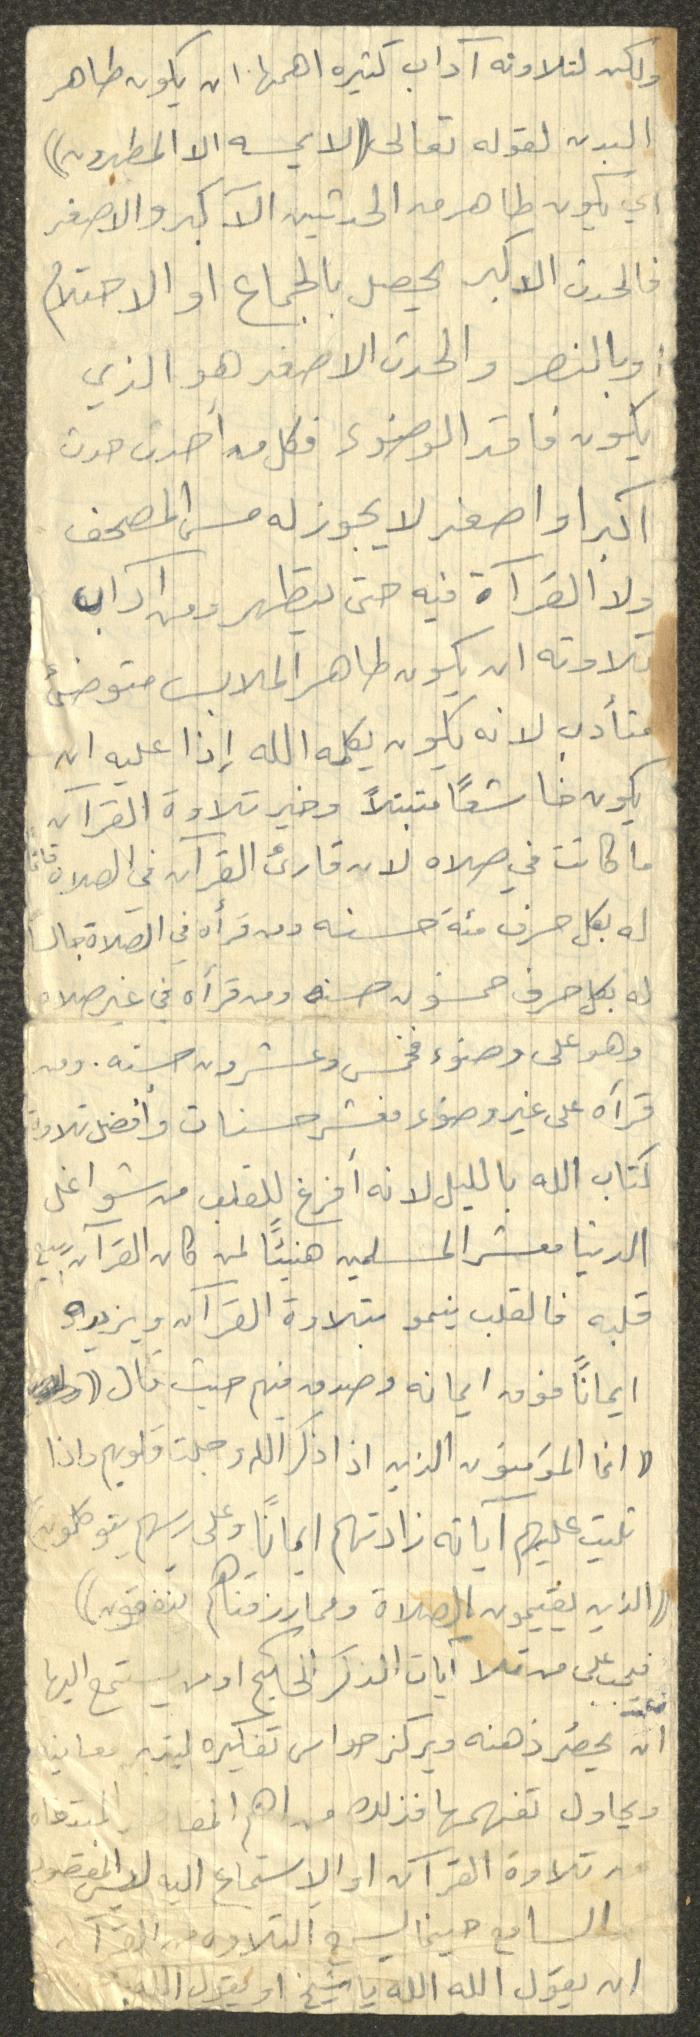 ولكن لتلاوته آداب كثيره اهمها ان يكون طاهر
البدن لقوله تعالى ((لا يمسه الا المطهرون))
اي يكون طاهر من الحدثين الآكبر والاصغر
فالحدث الاكبر يحصل بالجماع او الاحتلام
او بالنصر والحدث الاصغر هو الذي
يكون فاقد الوضوء فكل من أحدث حدث
اكبر او اصغر لا يجوز له مس المصحف
ولا القرآة فيه حتى يتطهر ومن آداب
تلاوته ان يكون طاهر الملابس متوضئ
متأدب لانه يكون يكلمه الله إذا عليه ان
يكون خاشعًا متبتلاً وخير تلاوة القرآن
ما كانت في صلاه لان قارئ القرآن في الصلاة قائمًا
له بكل حرف مئة حسنه ومن قرأه في الصلاة جالسًا
له بكل حرف خمسون حسنه ومن قرأه في غير صلاه
وهو على وضوء فخمس وعشرون حسنه. ومن
قرآه على غير وضوء فعشر حسنات وأفضل تلاوة
كتاب الله بالليل لانه أفرغ للقلب من شواغل
الدنيا معشر المسلمين هنيئًا لمن كان القرآن ربيع
قلبه فالقلب ينمو بتلاوة القرآن ويزيده
ايمانًا فوق ايمانه وصدق فيهم حيث قال
((انما المؤمنون الذين اذا ذكر الله وجلت قلوبهم واذا
تليت عليهم آياته زادتهم ايمانًا وعلى ربهم يتوكلون))
((الذين يقيمون الصلاة ومما رزقناهم ينفقون))
فيجب على من تلا آيات الذكر الحكيم او من يستمع اليها
ان يحضر ذهنه ويركز حواس تفكيره ليتدبر معانيه
ويحاول تفهمها فذلك من اهم المقاصد المبتغاه
من تلاوة القرآن او الاستماع اليه ليس المقصود
السامع حينما يسمع التلاوه من القرآن
ان يقول الله الله يا شيخ او يقول الله